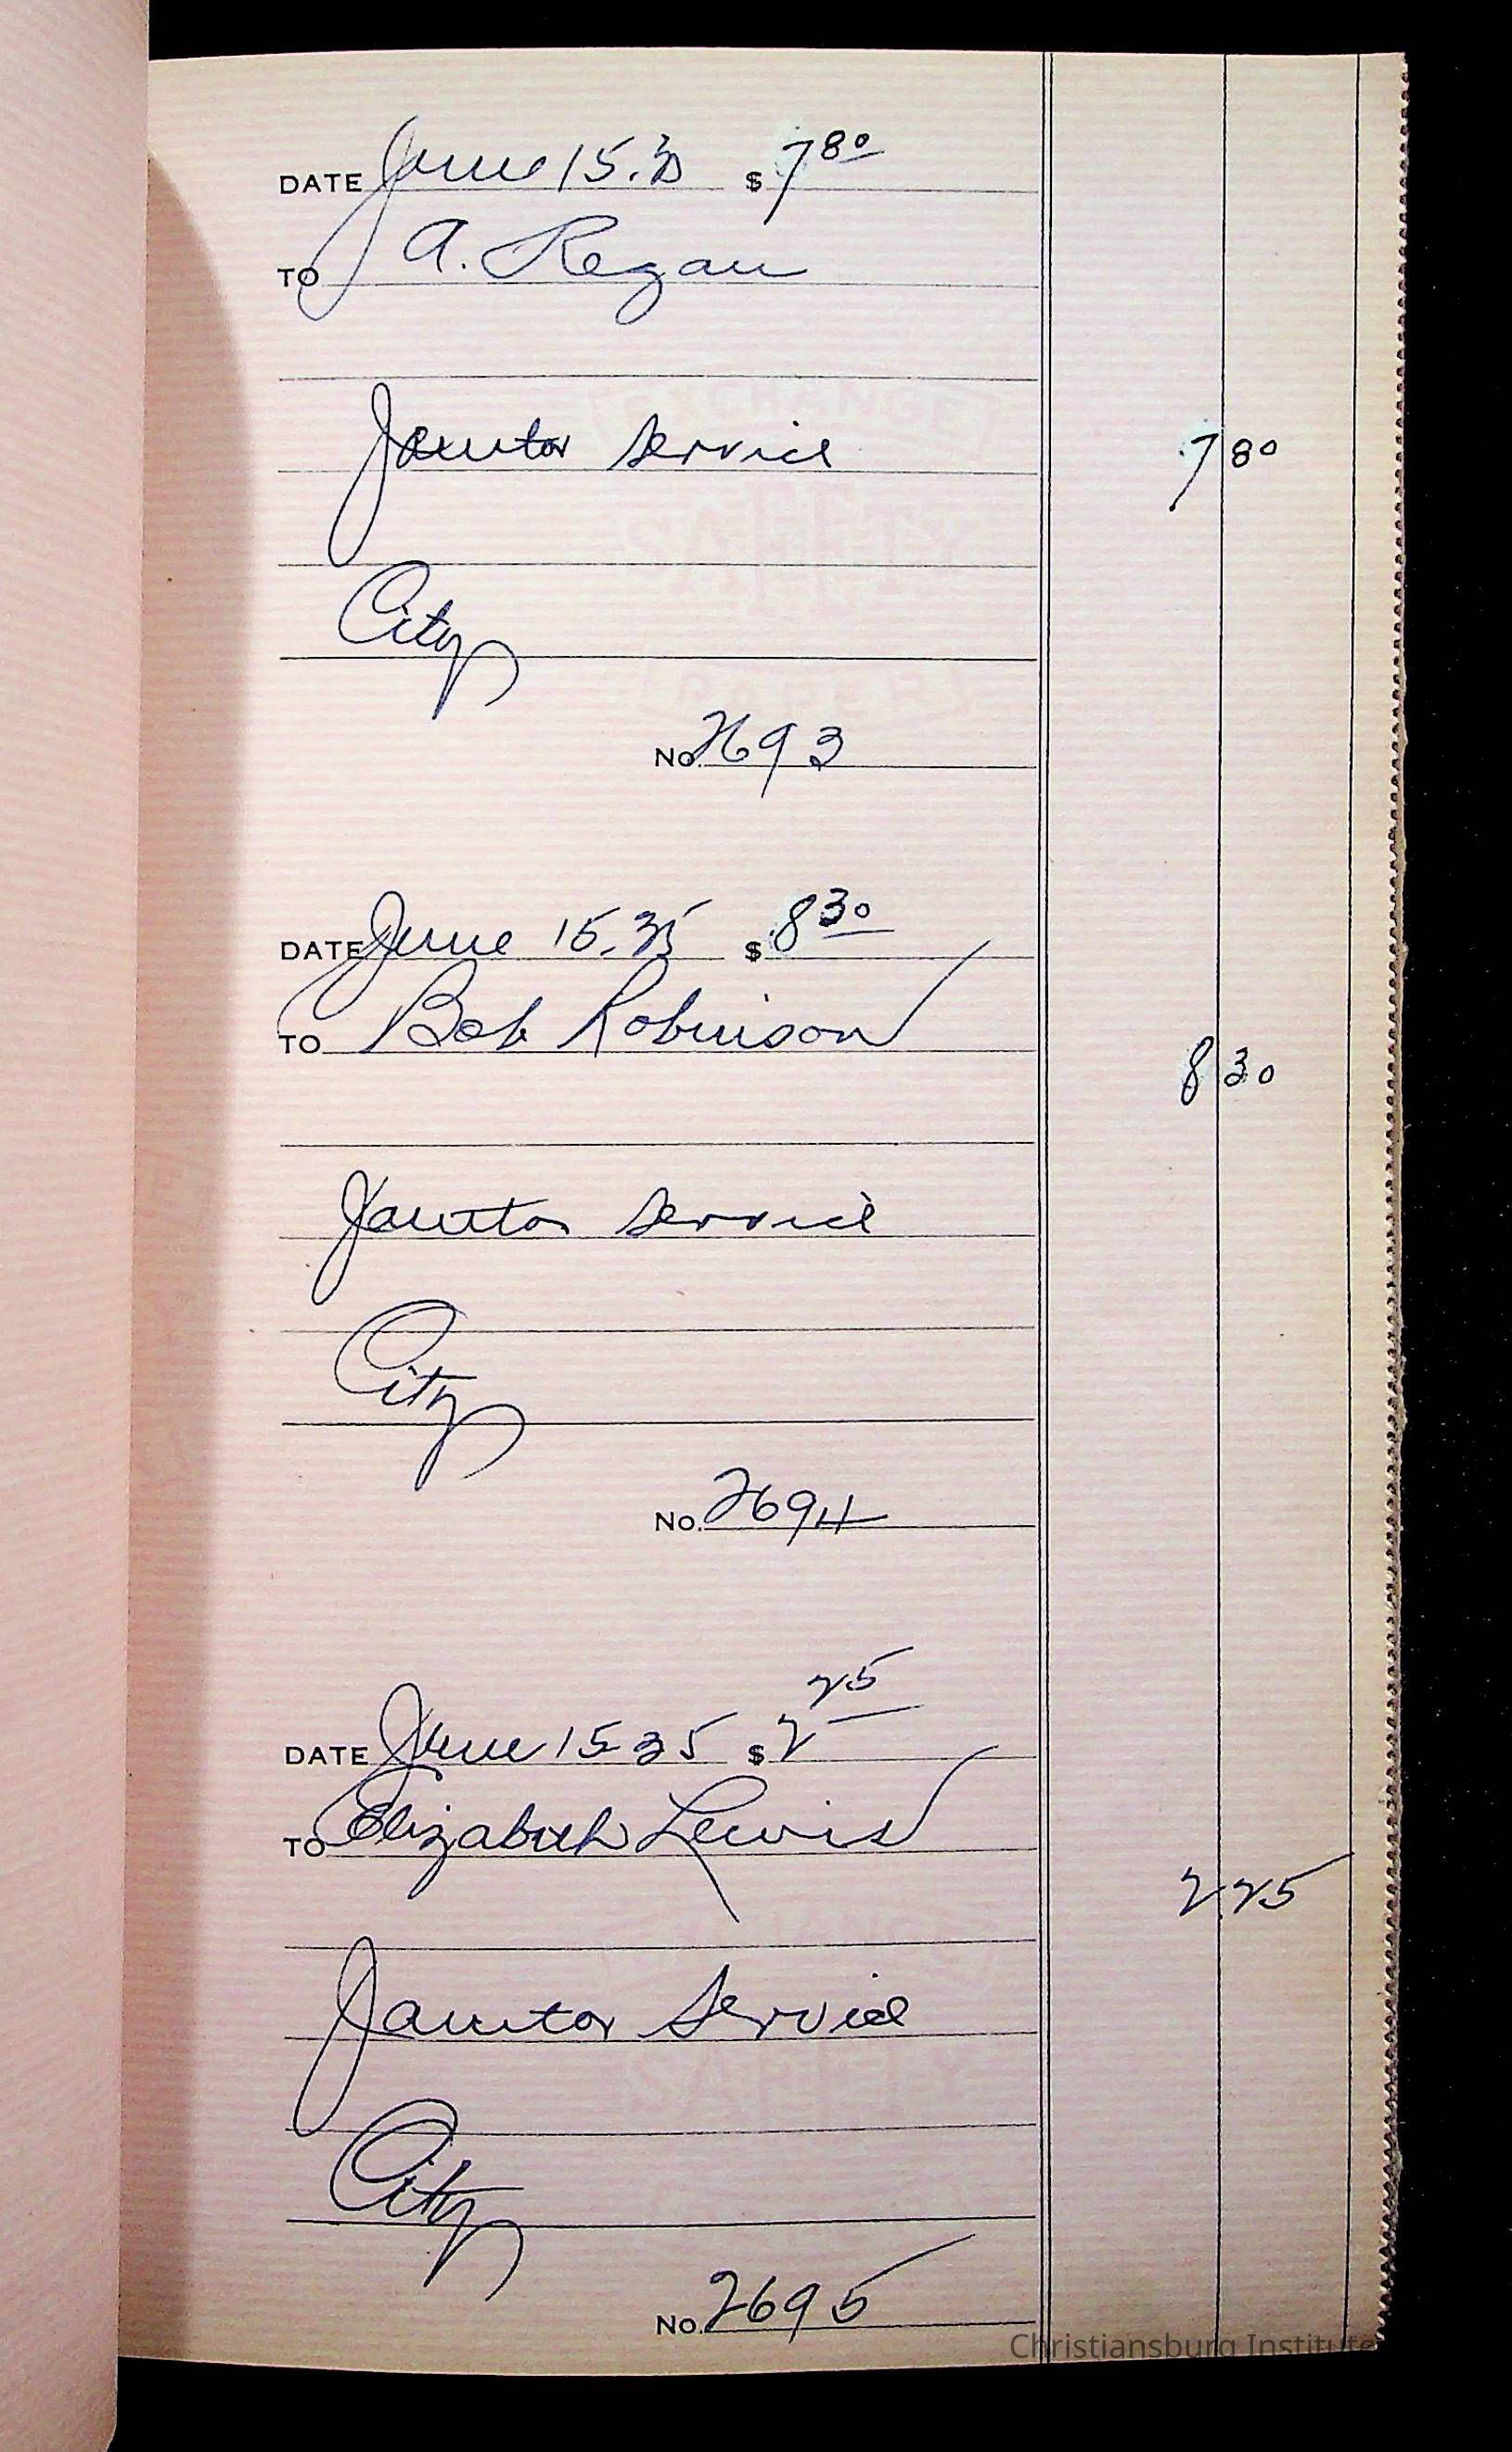 DATE June 15.35 $ 7 80
TO A. Regan
Janitor service 7 80
City
No. 2693
DATE June 15.35 $ 8 30
TO Bob Robinson
8 30
Janitor service
City
No. 2694
DATE June 15 35 $ 2 25
TO Elizabeth Lewis
2.25
Janitor Service
City
No. 2695
Christiansburg Institute